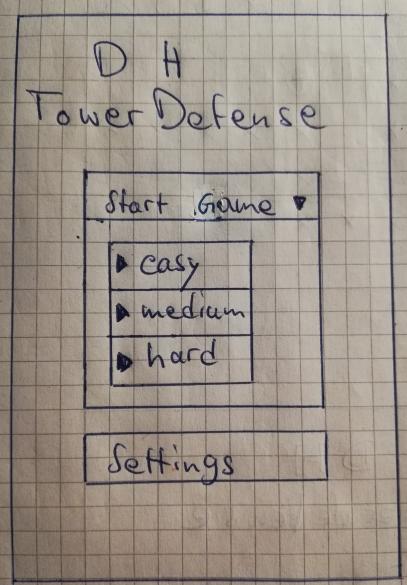 D H
Tower Defense
Start Game ▼
▶ easy
▶ medium
▶ hard
Settings